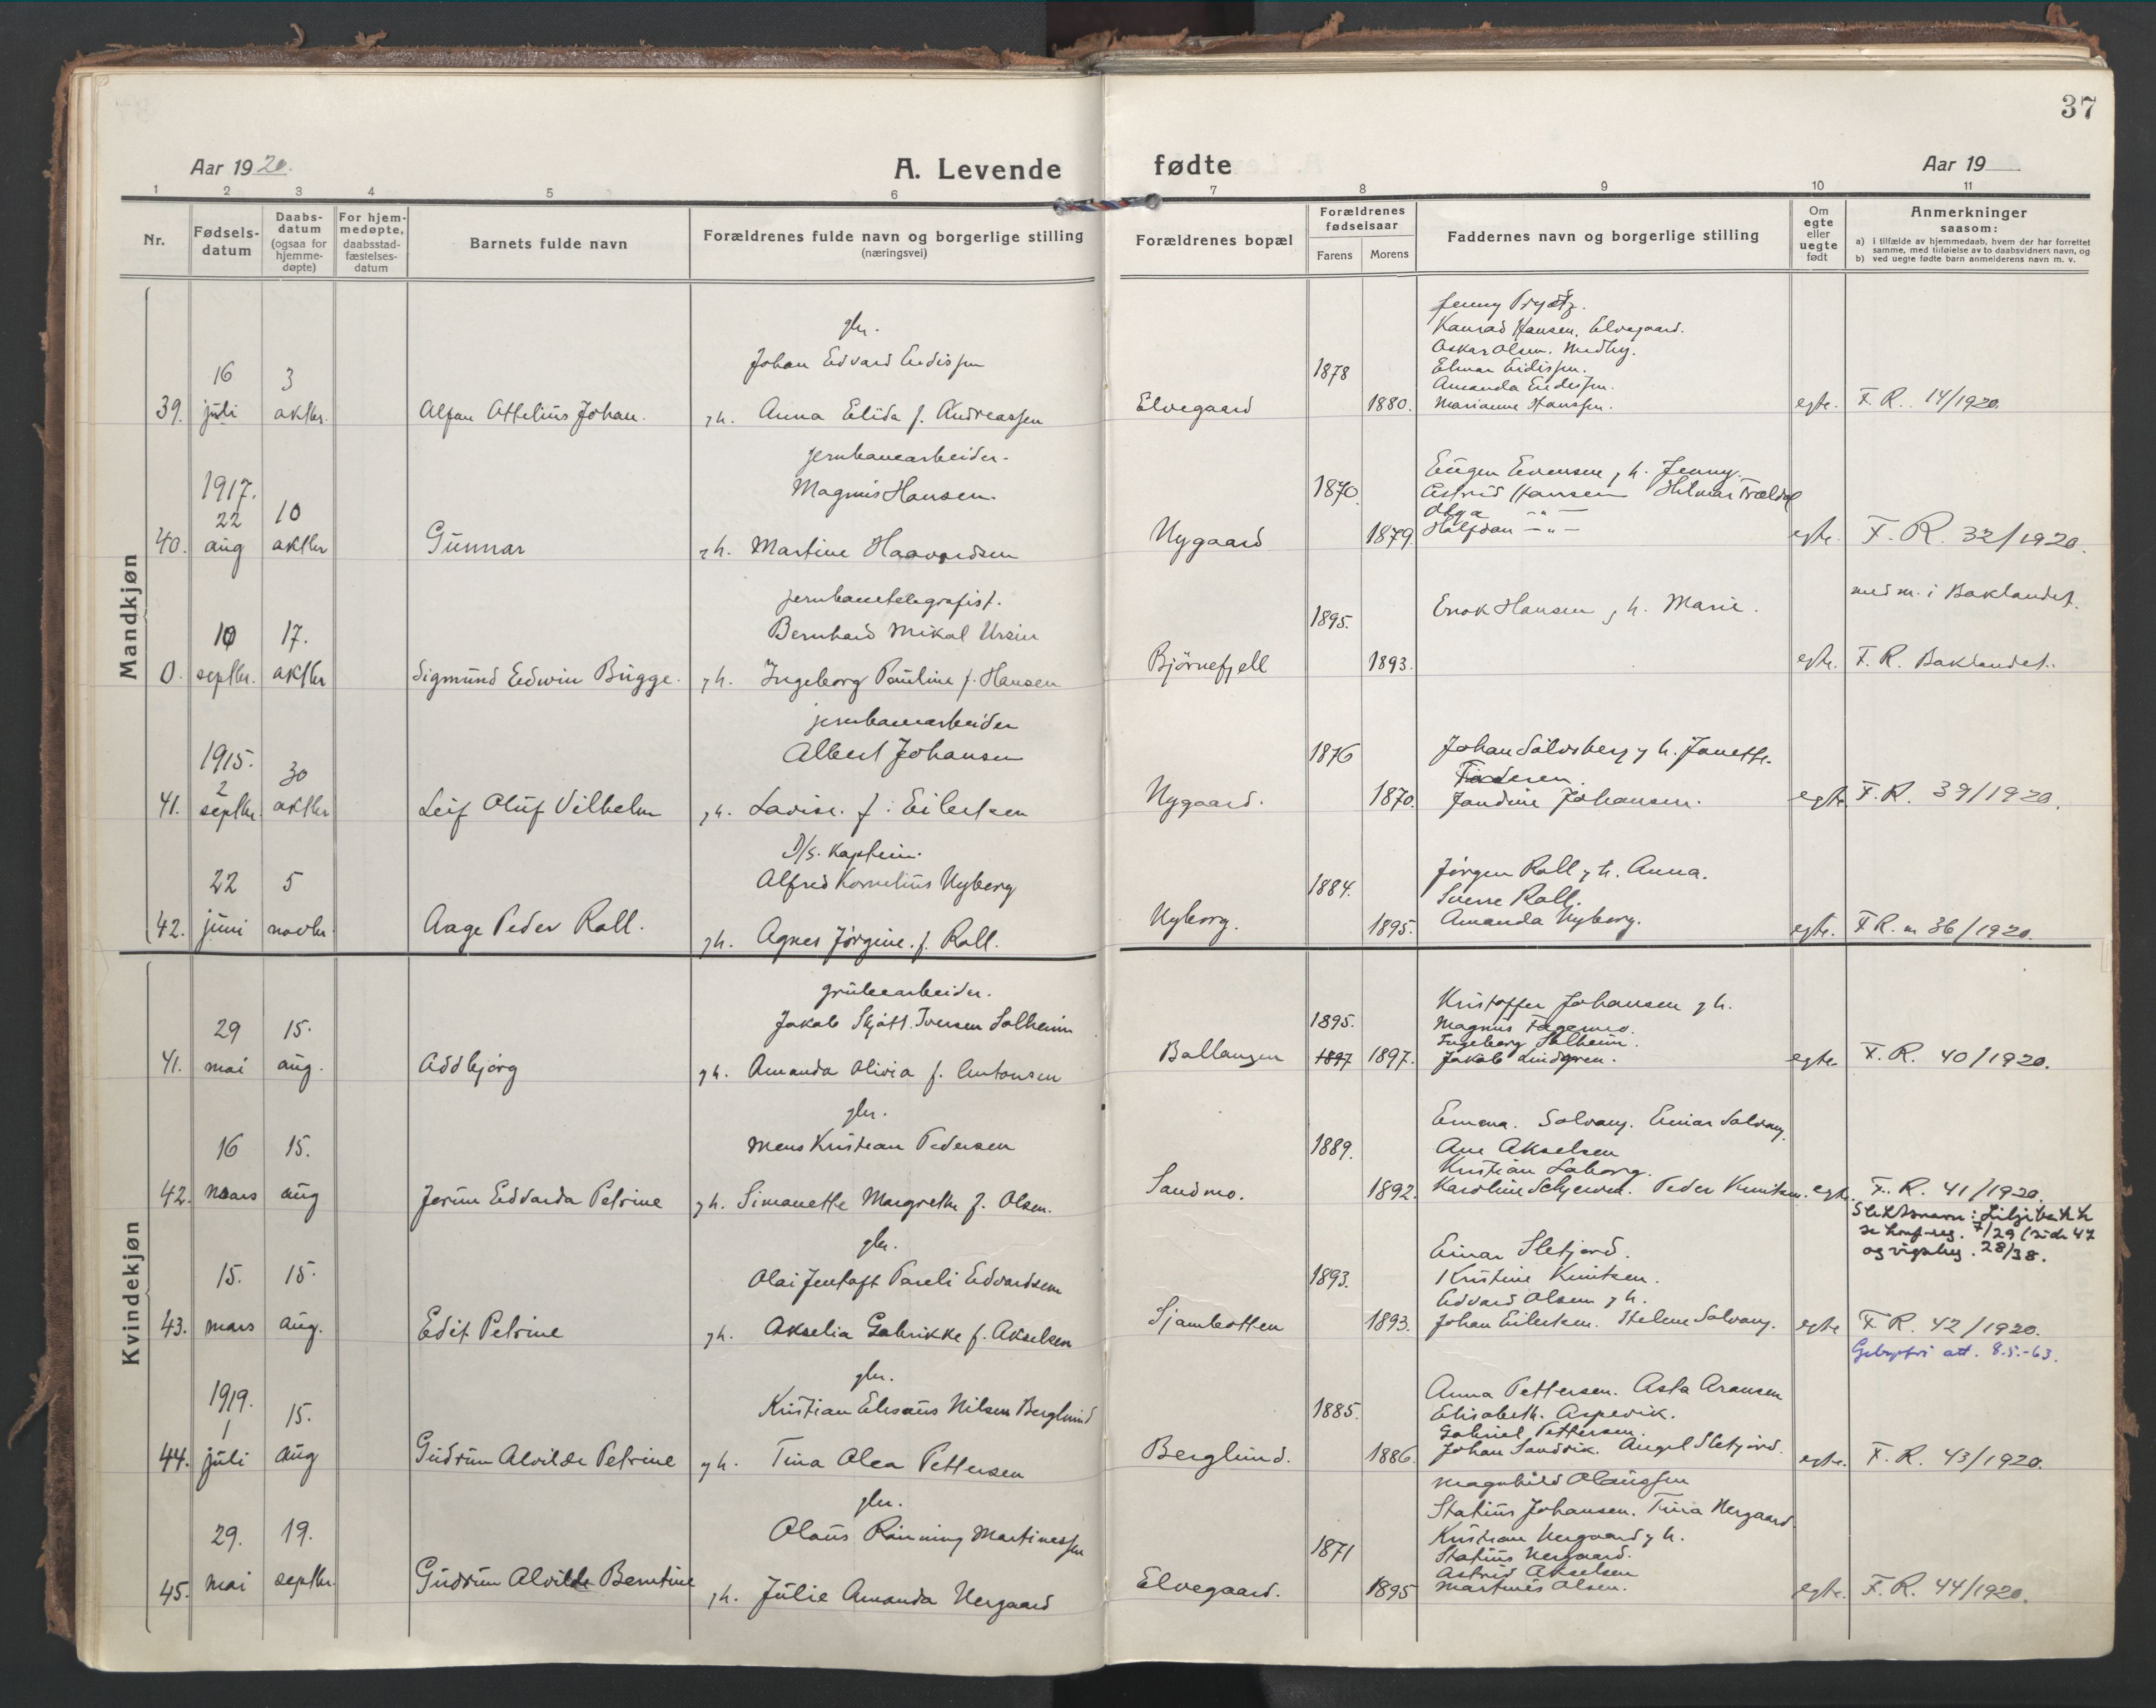 37
Aar 1920.
A. Levende fødte
Aar 19
1 2 3 4 5 6 7 8 9 10 11
Nr.
Fødselsdatum
Daabsdatum (ogsaa for hjemmedøpte)
For hjemmedøpte, daabsstadfæstelsesdatum
Barnets fulde navn
Forældrenes fulde navn og borgerlige stilling (næringsvei)
Forældrenes bopæl
Forældrenes fødselsaar
Farens
Morens
Faddernes navn og borgerlige stilling
Om egte eller uegte født
Anmerkninger saasom:
a) i tilfælde av hjemmedaab, hvem der har forrettet samme, med tilføielse av to daabsvidners navn, og
b) ved uegte fødte barn anmelderens navn m. v.
Mandkjøn
39. 16 juli 3 oktbr.
Alfon Attelius Johan.
gbr.
Johan Edvard Eidissen
g h. Anna Elida f. Andreassen
Elvegaard
1878
1880.
Jenny Prytz.
Konrad Hansen, Elvegaard.
Oskar Olsen. Medby.
Elmar Eidissen.
Amanda Eidissen.
Marianne Hanssen.
egte.
F. R. 14/1920.
40. 1917. 22 aug 10 oktbr
Gunnar
jernbanearbeider.
Magnus Hansen.
g h. Martine Haavardsen
Nygaard
1870
1879.
Eugen Evensen g h. Jenny.
Astrid Hansen Hilmar Trældal
Olga -"-
Halfdan -"-
egte.
F. R. 32/1920.
0. 10 septbr. 17. oktbr
Sigmund Edwin Bugge.
jernbanetelegrafist.
Bernhard Mikal Ursin
g h. Ingeborg Pauline f. Hansen
Bjørnefjell
1895.
1893.
Enok Hansen g h. Marie.
egte.
med m. i Baklandet.
F. R. Baklandet.
41. 1915. 2 septbr. 30 oktbr
Leif Oluf Vilhelm
jernbanearbeider
Albert Johansen
g h. Lovise. f. Eilertsen
Nygaard.
1876
1870.
Johan Sølvsberg g h. Janette.
Faderen.
Jandine Johansen.
egte
F. R. 39/1920.
42. 22 juni 5 novbr.
Aage Peder Roll.
D/S. Kaptein.
Alfred Kornelius Nyborg
g h. Agnes Jørgine. f. Roll.
Nyborg.
1884.
1895.
Jørgen Roll g h. Anna.
Sverre Roll.
Amanda Nyborg.
egte.
F R. n 36/1920.
Kvindekjøn
41. 29 mai 15. aug.
Oddbjørg
grubearbeider.
Jakob Skjått. Iversen Solheim
g h. Amanda Olivia f. Antonsen
Ballangen
1895.
1897 1897.
Kristoffer Johansen g h.
Magnus Fagermo.
Ingeborg Solheim.
Jakob Lindgren.
egte.
F. R. 40/1920.
42. 16 mars 15. aug
Jorun Edvarda Petrine
gbr.
Mons Kristian Pedersen
g h. Simanette Margrethe f. Olsen.
Sandmo.
1889.
1892.
Emma. Solvang. Einar Solvang.
Ane Akselsen
Kristian Soborg.
Karoline Peder Knutsen.
egte.
F. R. 41/1920.
Slektsnavn: Liljebakk
se konf-reg. 7/29 (side 47
og vigselreg. 28/38.
43. 15. mars 15. aug.
Edit Petrine
gbr.
Olai Jentoft Pareli Edvardsen
g h. Akselia Gabrikke f. Akselsen
Sjambotten
1893.
1893.
Einar Sletjord.
Kristine Knutsen.
Edvard Olsen g h.
Johan Eilertsen. Helene Solvang.
egte
F. R. 42/1920.
Gebyrfri att. 8.5.-63.
44. 1919. 1 juli 15. aug
Gudrun Alvilde Petrine
gbr.
Kristian Elisæus Nilsen Berglund
g h. Tina Olea Pettersen
Berglund.
1885.
1886.
Anna Pettersen. Asta Aronsen
Elisabeth. Aspevik.
Gabriel Pettersen.
Johan Sandvik. Angel Sletjord.
egte.
F. R. 43/1920.
45. 29. mai 19. septbr.
Gudrun Alvilde Berntine
gbr.
Olaus Rønning Martinessen
g h. Julie Amanda Nergaard
Elvegaard.
1871
1895
Magnhild Olaussen
Statius Johansen. Tina Nergaard.
Kristian Nergaard g h.
Statius Nergaard.
Astrid Akselsen
Martinus Olsen.
egte.
F. R. 44/1920.